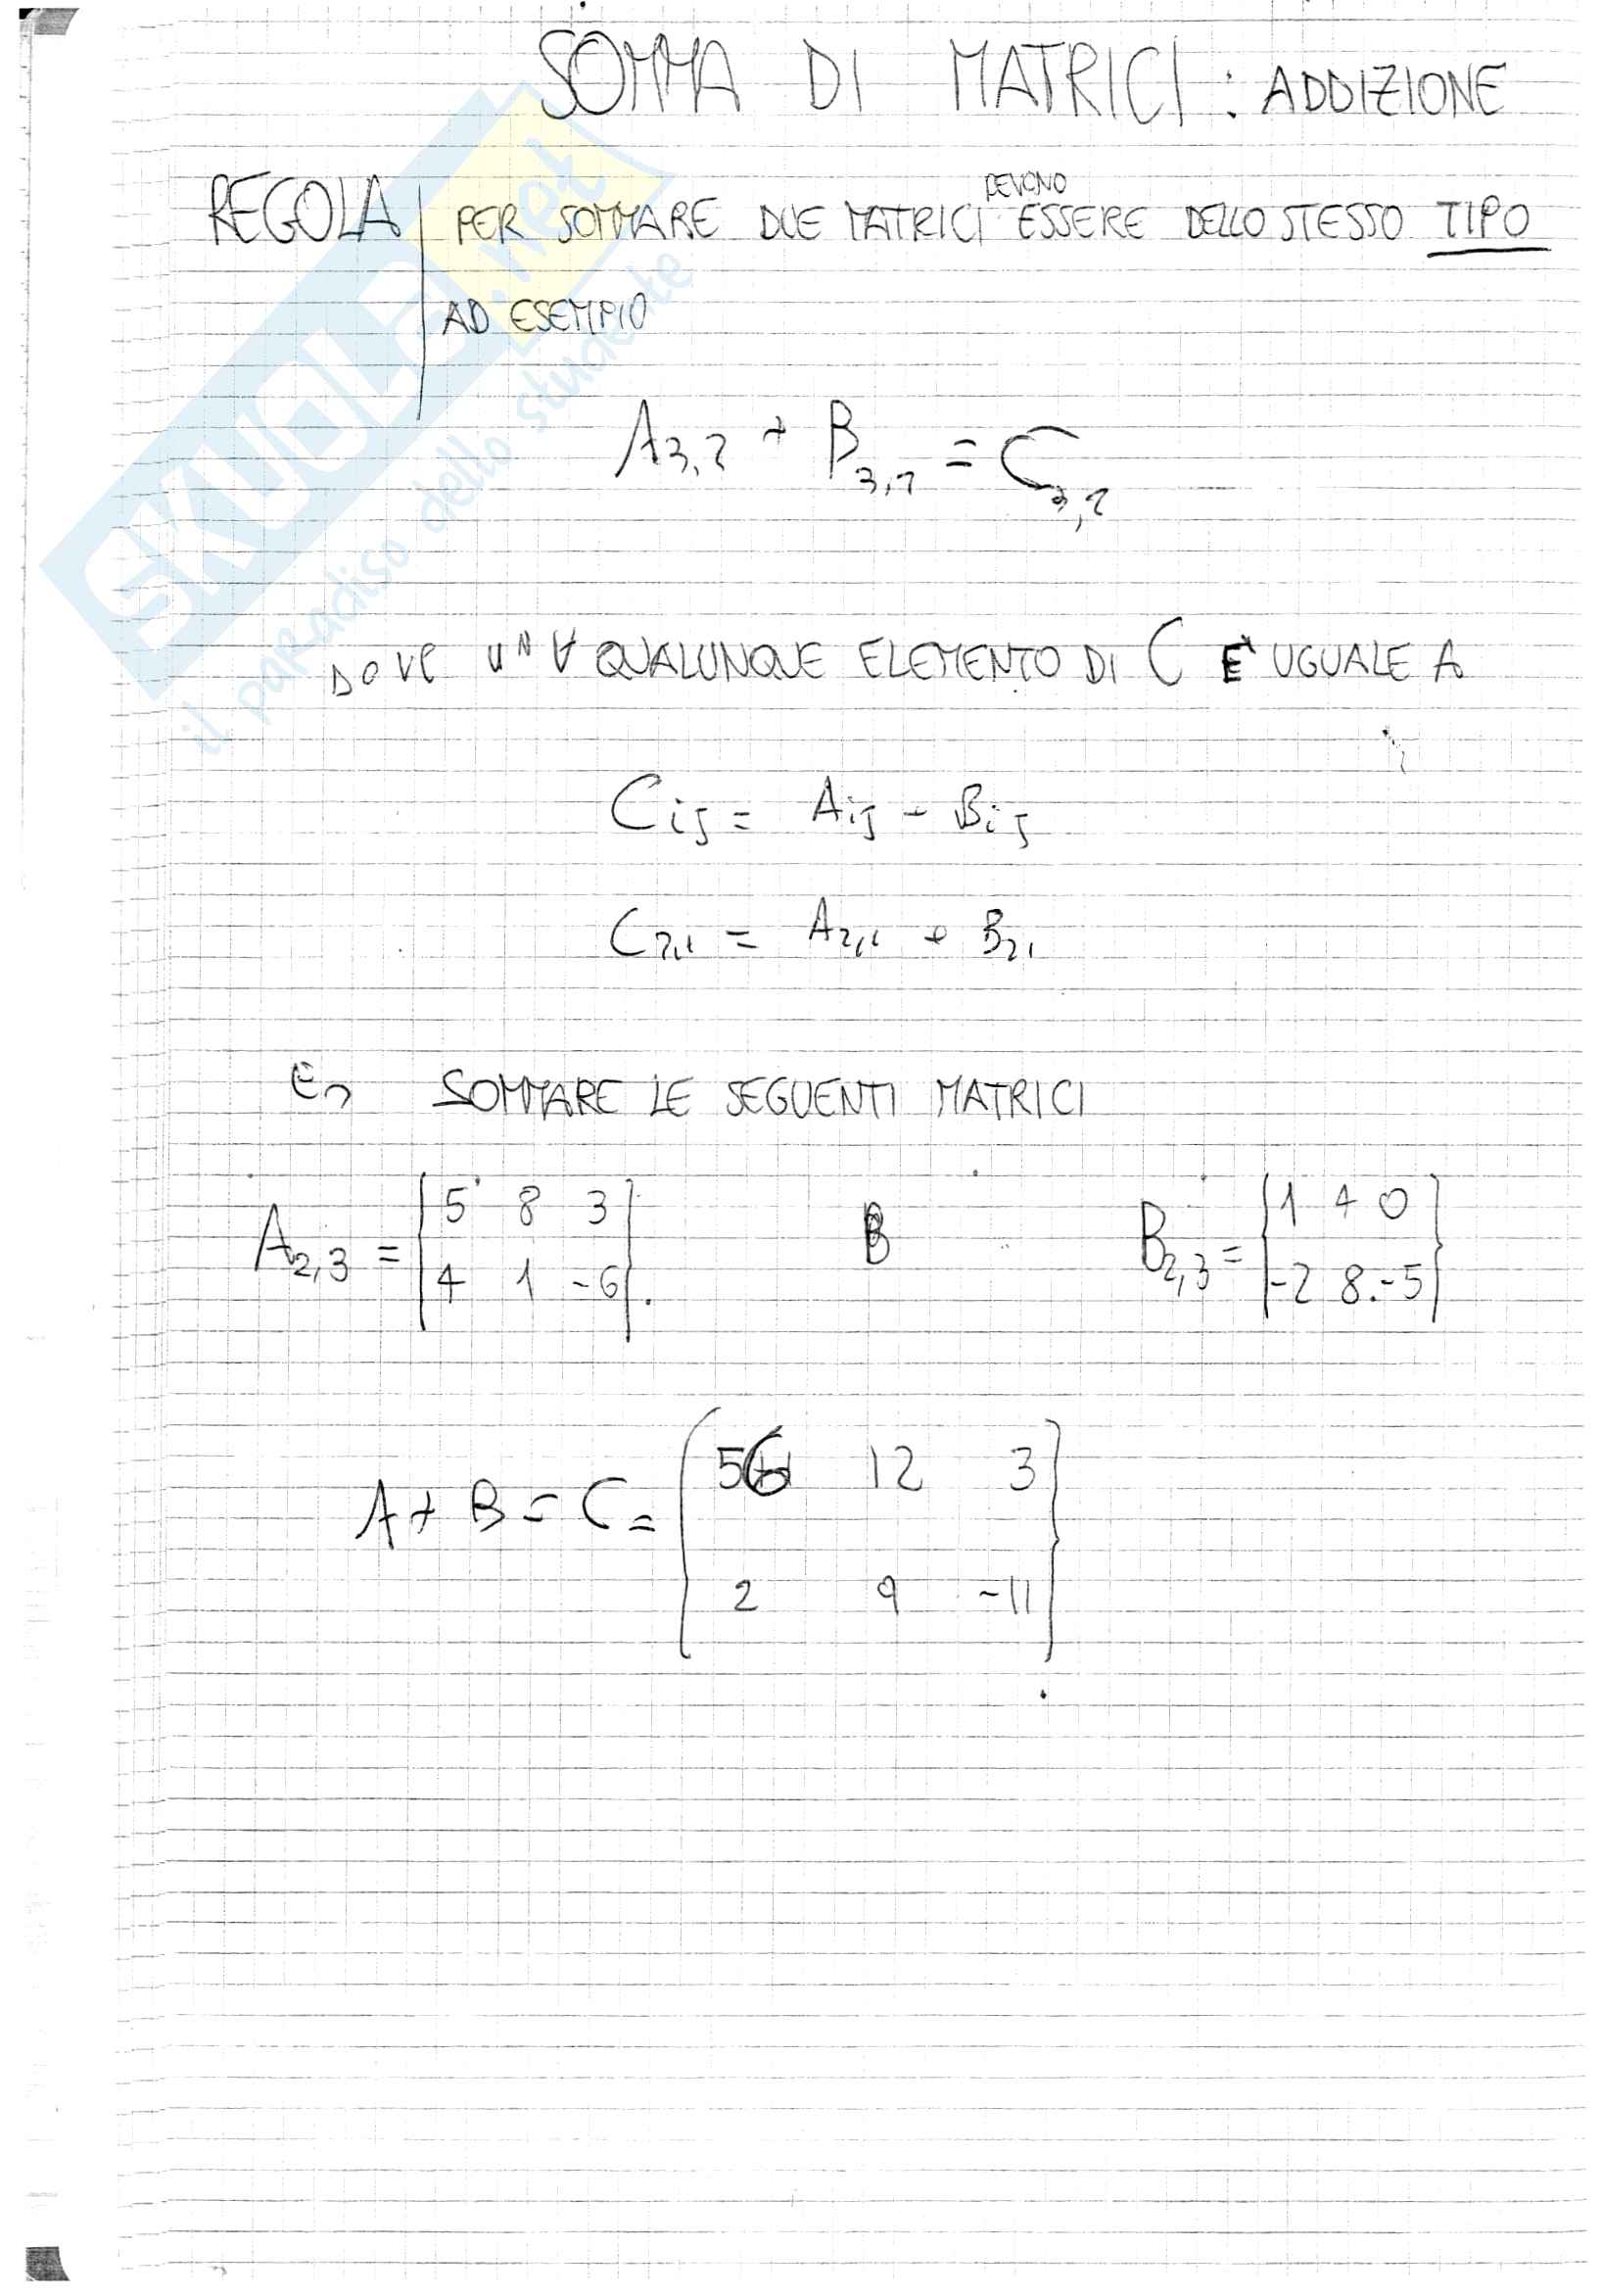 SOMMA DI MATRICI: ADDIZIONE
REGOLA PER SOMMARE DUE MATRICI DEVONO ESSERE DELLO STESSO TIPO
AD ESEMPIO
A3,2 + B3,2 = C3,2
DOVE UN ∀ QUALUNQUE ELEMENTO DI C È UGUALE A
Cij = Aij - Bij
C2,1 = A2,1 + B21
Es SOMMARE LE SEGUENTI MATRICI
5 8 3 1 4 0
A2,3 = B B2,3 =
4 1 -6 -2 8 -5
6 12 3
A + B = C =
2 9 -11
SKUOLA.net
il paradiso dello studente